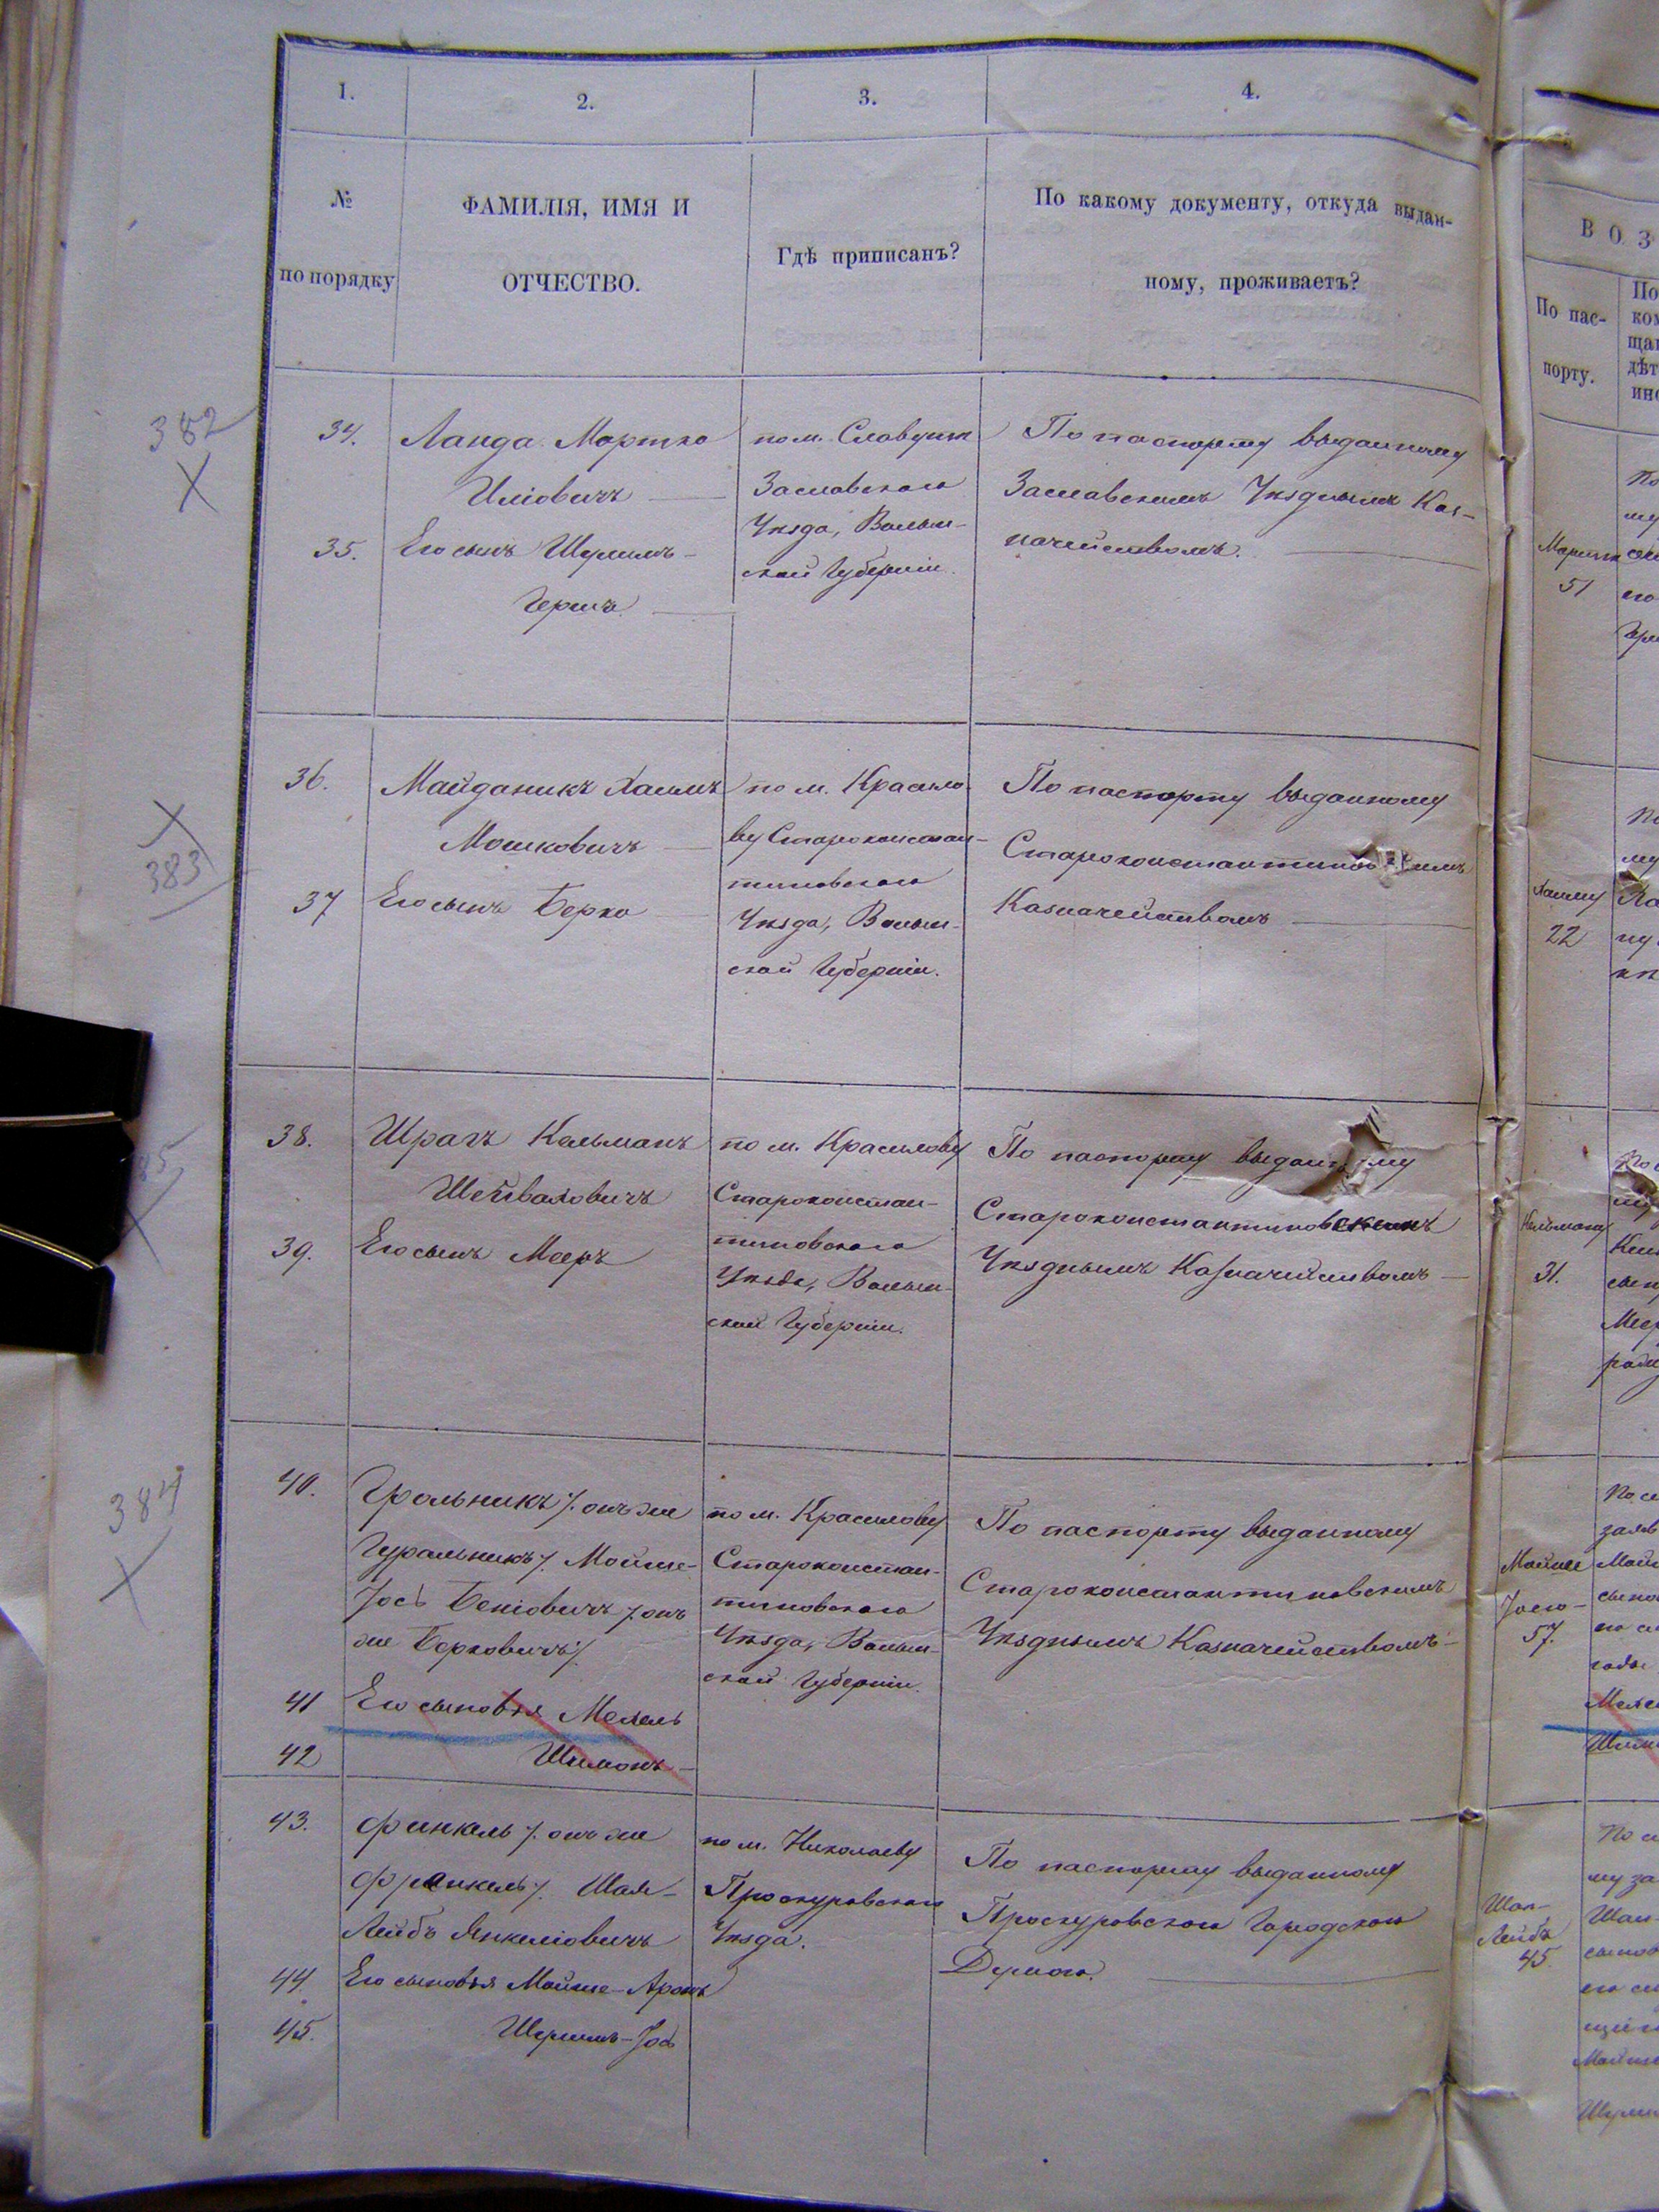 1.
2.
3.
4.
№
по порядку
ФАМИЛІЯ, ИМЯ И
ОТЧЕСТВО.
Гдѣ приписанъ?
По какому документу, откуда выдан-
ному, проживаетъ?
382
34.
Ланда Мортко
Иліовичъ
35.
Его сынъ Шулимъ-
Гершъ
по м. Славутѣ
Заславскаго
Уѣзда, Волын-
ской Губерніи.
По паспорту выданному
Заславскимъ Уѣзднымъ Каз-
начействомъ.
383
36.
Майданикъ Хаимъ
Мошковичъ
37
Его сынъ Берко
по м. Красило
ву Староконстан-
тиновскаго
Уѣзда, Волын-
ской Губерніи.
По паспорту выданному
Староконстантиновскимъ
Казначействомъ
38.
Шрагъ Кельманъ
Шейваховичъ
39.
Его сынъ Мееръ
по м. Красилову
Староконстан-
тиновскаго
Уѣзда, Волын-
ской Губерніи.
По паспорту выданному
Староконстантиновскимъ
Уѣзднымъ Казначействомъ
384
40.
Грольникъ /: онъ же
Гуральникъ :/ Мойше-
Іось Беніовичъ /: онъ
же Берковичъ :/
41
Его сыновья Мехель
42
Шимонъ
по м. Красилову
Староконстан-
тиновскаго
Уѣзда, Волын-
ской Губерніи.
По паспорту выданному
Староконстантиновскимъ
Уѣзднымъ Казначействомъ
43.
Финкель /: онъ же
Френкель :/ Шая-
Лейбъ Янкеліовичъ
44.
Его сыновья Мойше-Аронъ
45.
Шулимъ-Іось
по м. Николаеву
Проскуровскаго
Уѣзда.
По паспорту выданному
Проскуровскою Городскою
Думою.
ВОЗ
По пас-
порту.
51
Хаиму
22
Кельману
31.
Мойше
Іосю-
57.
Шая-
Лейбъ
45.